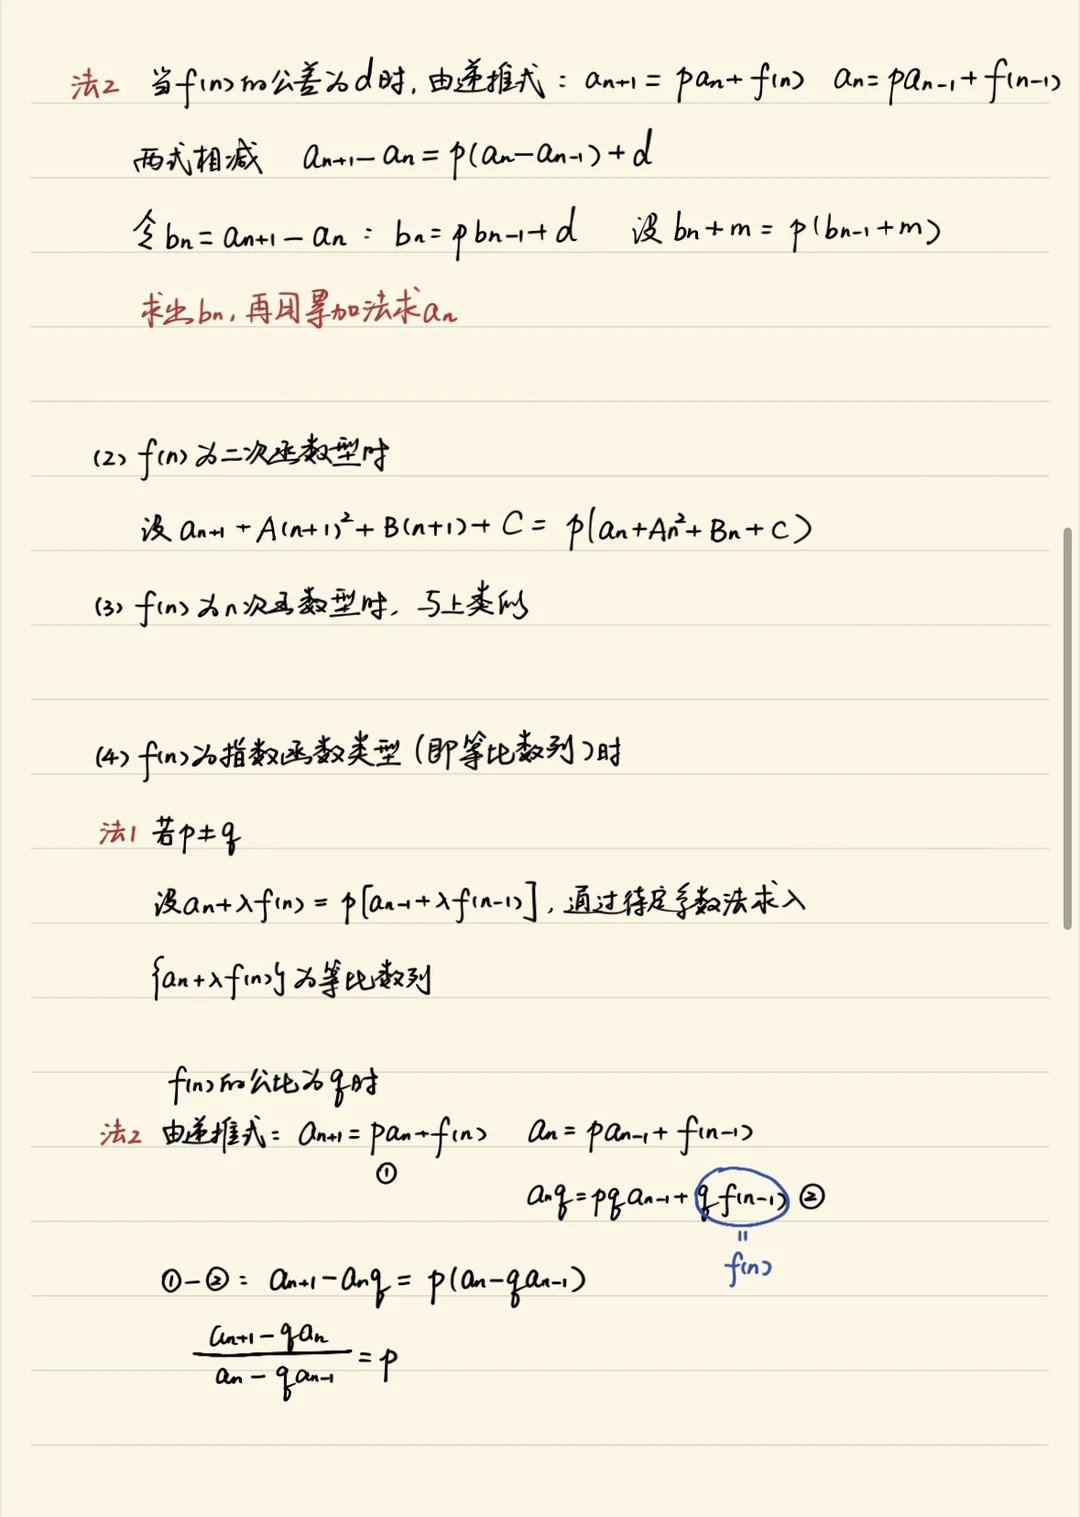 法2 当f(n)的公差为d时,由递推式:aₙ₊₁=paₙ+f(n) aₙ=paₙ₋₁+f(n-1)
两式相减 aₙ₊₁-aₙ=p(aₙ-aₙ₋₁)+d
令bₙ=aₙ₊₁-aₙ:bₙ=pbₙ₋₁+d 设bₙ+m=p(bₙ₋₁+m)
求出bₙ,再用累加法求aₙ
(2) f(n)为二次函数型时
设aₙ₊₁+A(n+1)²+B(n+1)+C=p(aₙ+An²+Bn+C)
(3) f(n)为n次函数型时,与上类似
(4) f(n)为指数函数类型(即等比数列)时
法1 若p≠q
设aₙ+λf(n)=p[aₙ₋₁+λf(n-1)],通过待定系数法求λ
{aₙ+λf(n)}为等比数列
f(n)的公比为q时
法2 由递推式:aₙ₊₁=paₙ+f(n) aₙ=paₙ₋₁+f(n-1)
①
aₙq=pqaₙ₋₁+qf(n-1) ②
=
f(n)
①-②:aₙ₊₁-aₙq=p(aₙ-qaₙ₋₁)
(aₙ₊₁-qaₙ)/(aₙ-qaₙ₋₁)=p